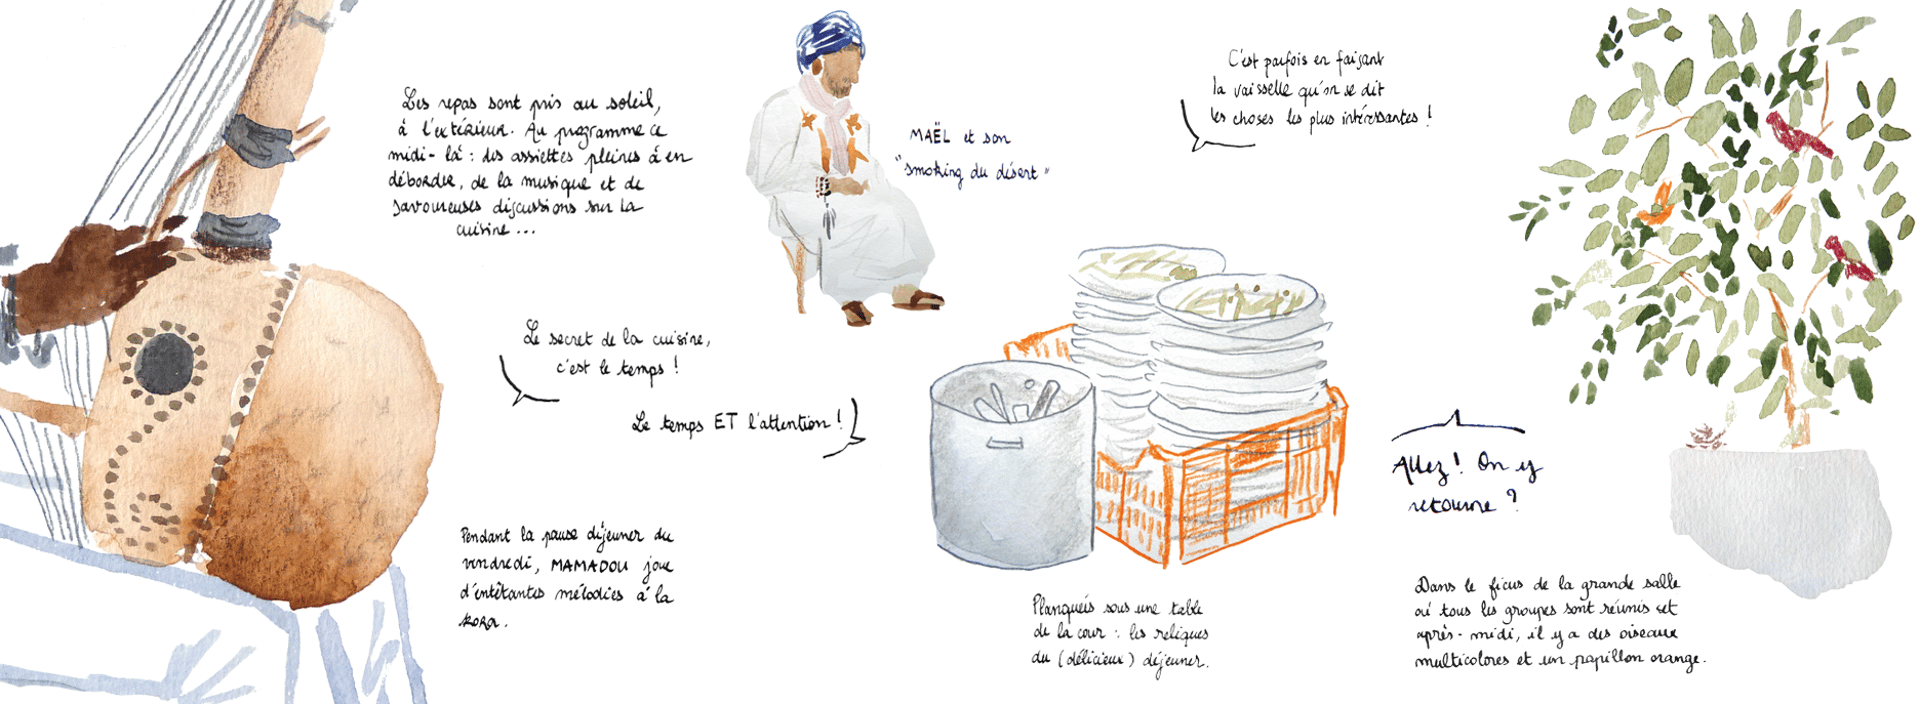 Les repas sont pris au soleil,
à l'extérieur. Au programme ce
midi-là : des assiettes pleines à en
déborder, de la musique et de
savoureuses discussions sur la
cuisine...
MAËL et son
"smoking du désert"
C'est parfois en faisant
la vaisselle qu'on se dit
les choses les plus intéressantes !
Le secret de la cuisine,
c'est le temps !
Le temps ET l'attention !
Pendant la pause déjeuner du
vendredi, MAMADOU joue
d'entêtantes mélodies à la
kora.
Planqués sous une table
de la cour : les reliques
du (délicieux) déjeuner.
Allez ! On y
retourne ?
Dans le ficus de la grande salle
où tous les groupes sont réunis cet
après-midi, il y a des oiseaux
multicolores et un papillon orange.